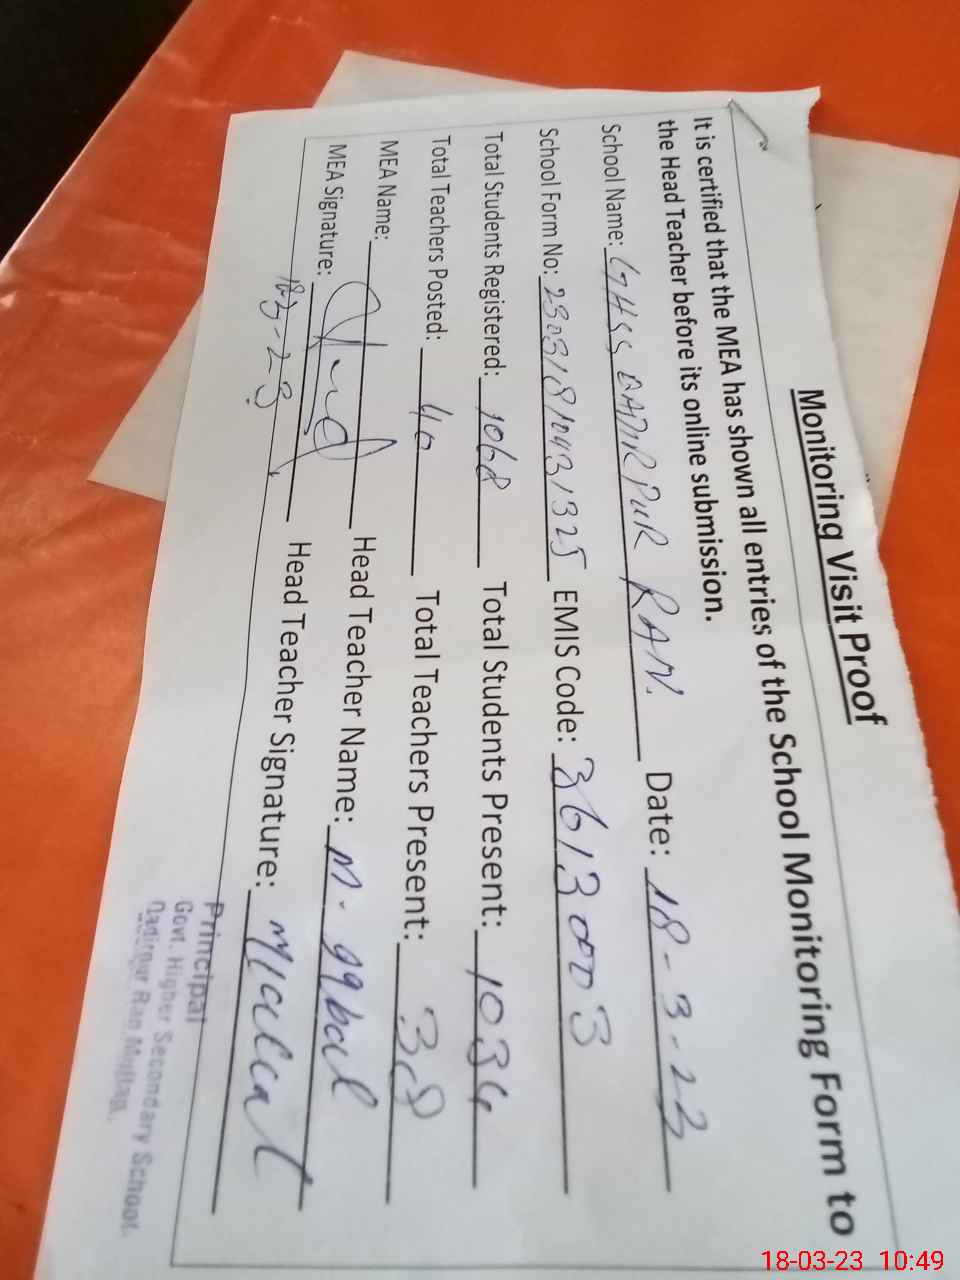 Monitoring Visit Proof
It is certified that the MEA has shown all entries of the School Monitoring Form to
the Head Teacher before its online submission.
School Name: GHSS QADIR PUR RAN. Date: 18-3-23
School Form No: 23031810431325 EMIS Code: 36130003
Total Students Registered: 1068 Total Students Present: 1034
Total Teachers Posted: 40 Total Teachers Present: 38
MEA Name: Head Teacher Name: M. Iqbal
MEA Signature: Head Teacher Signature:
18-3-23
Principal
Govt. Higher Secondary School.
Qadirpur Ran Multan.
18-03-23 10:49